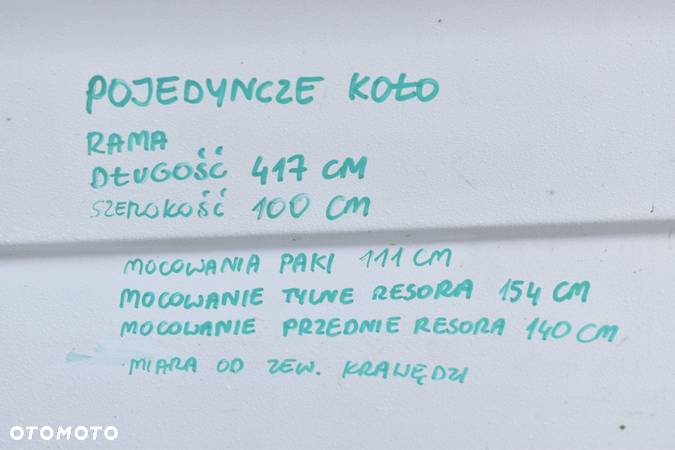 POJEDYNCZE KOŁO
RAMA
DŁUGOŚĆ 417 CM
SZEROKOŚĆ 100 CM
MOCOWANIA PAKI 111 CM
MOCOWANIE TYLNE RESORA 154 CM
MOCOWANIE PRZEDNIE RESORA 140 CM
MIARA OD ZEW. KRAWĘDZI
OTOMOTO